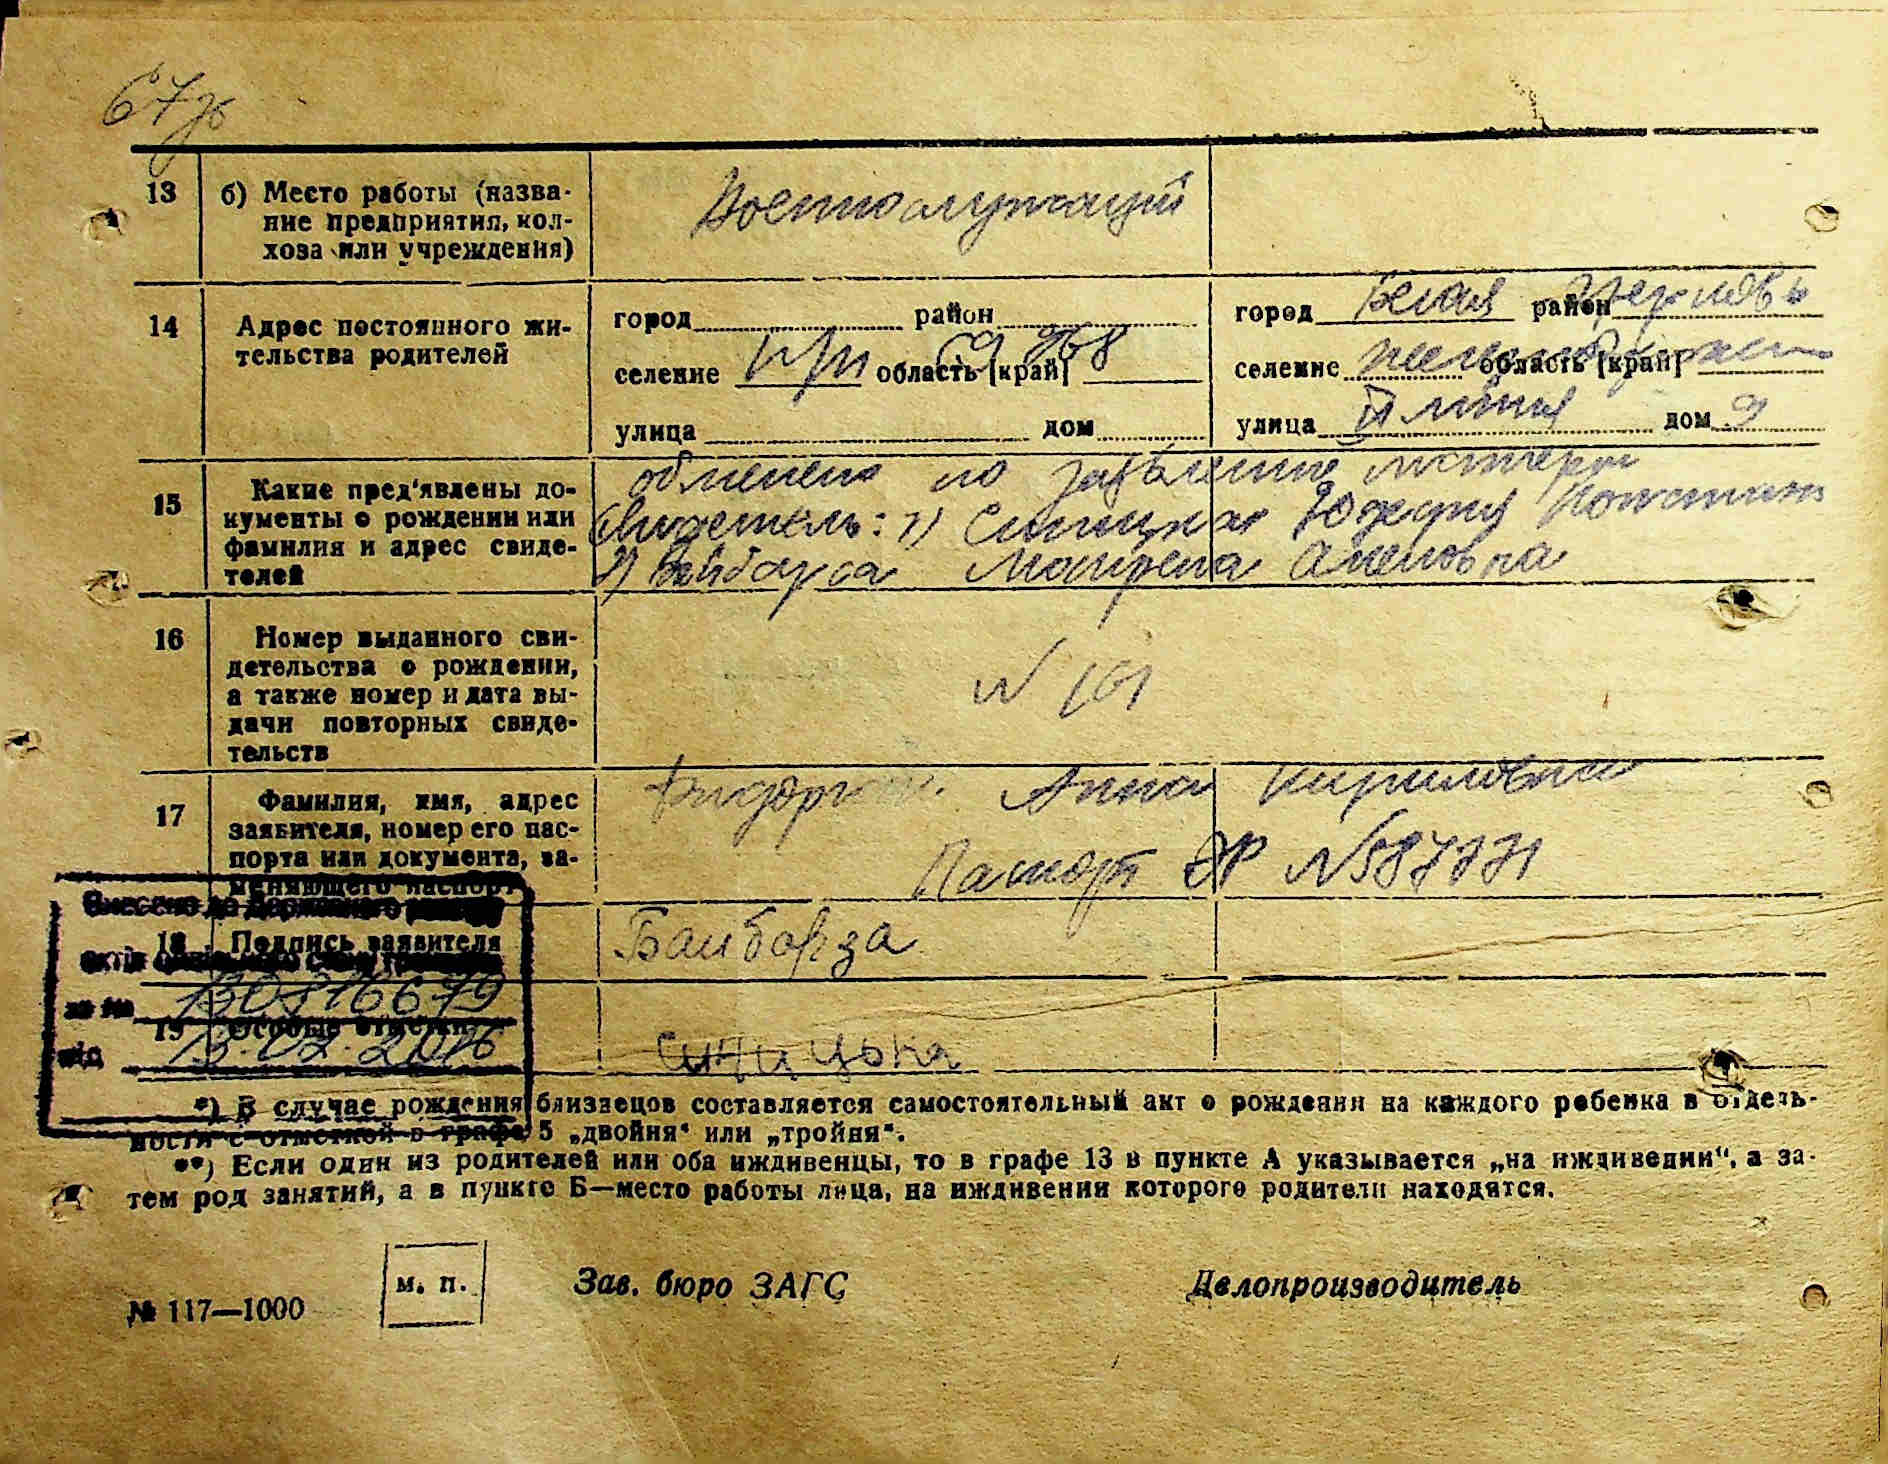 67
13 б) Место работы (назва-
ние предприятия, кол-
хоза или учреждения)
Военнослужащий
14 Адрес постоянного жи-
тельства родителей
город район
селение п/п область [край]
улица дом
город Белая район Церковь
селение область [край]
улица II линия дом 9
15 Какие пред'явлены до-
кументы о рождении или
фамилия и адрес свиде-
телей
по матери
Свидетель: 1)
2)
16 Номер выданного сви-
детельства о рождении,
а также номер и дата вы-
дачи повторных свиде-
тельств
N 161
17 Фамилия, имя, адрес
заявителя, номер его пас-
порта или документа, за-
меняющего паспорт
Анна Кириловна
Паспорт N587171
18 Подпись заявителя
Байборза
Внесено до Державного
актів цивільного стану громадян
за №
від 13.02.2016
19 Особые отметки
Синицька
*) В случае рождения близнецов составляется самостоятельный акт о рождении на каждого ребенка в отдель-
ности с отметкой в графе 5 „двойня“ или „тройня“.
**) Если один из родителей или оба иждивенцы, то в графе 13 в пункте А указывается „на иждивении“, а за-
тем род занятий, а в пункте Б—место работы лица, на иждивении которого родители находятся.
м. п.
Зав. бюро ЗАГС
Делопроизводитель
№ 117—1000